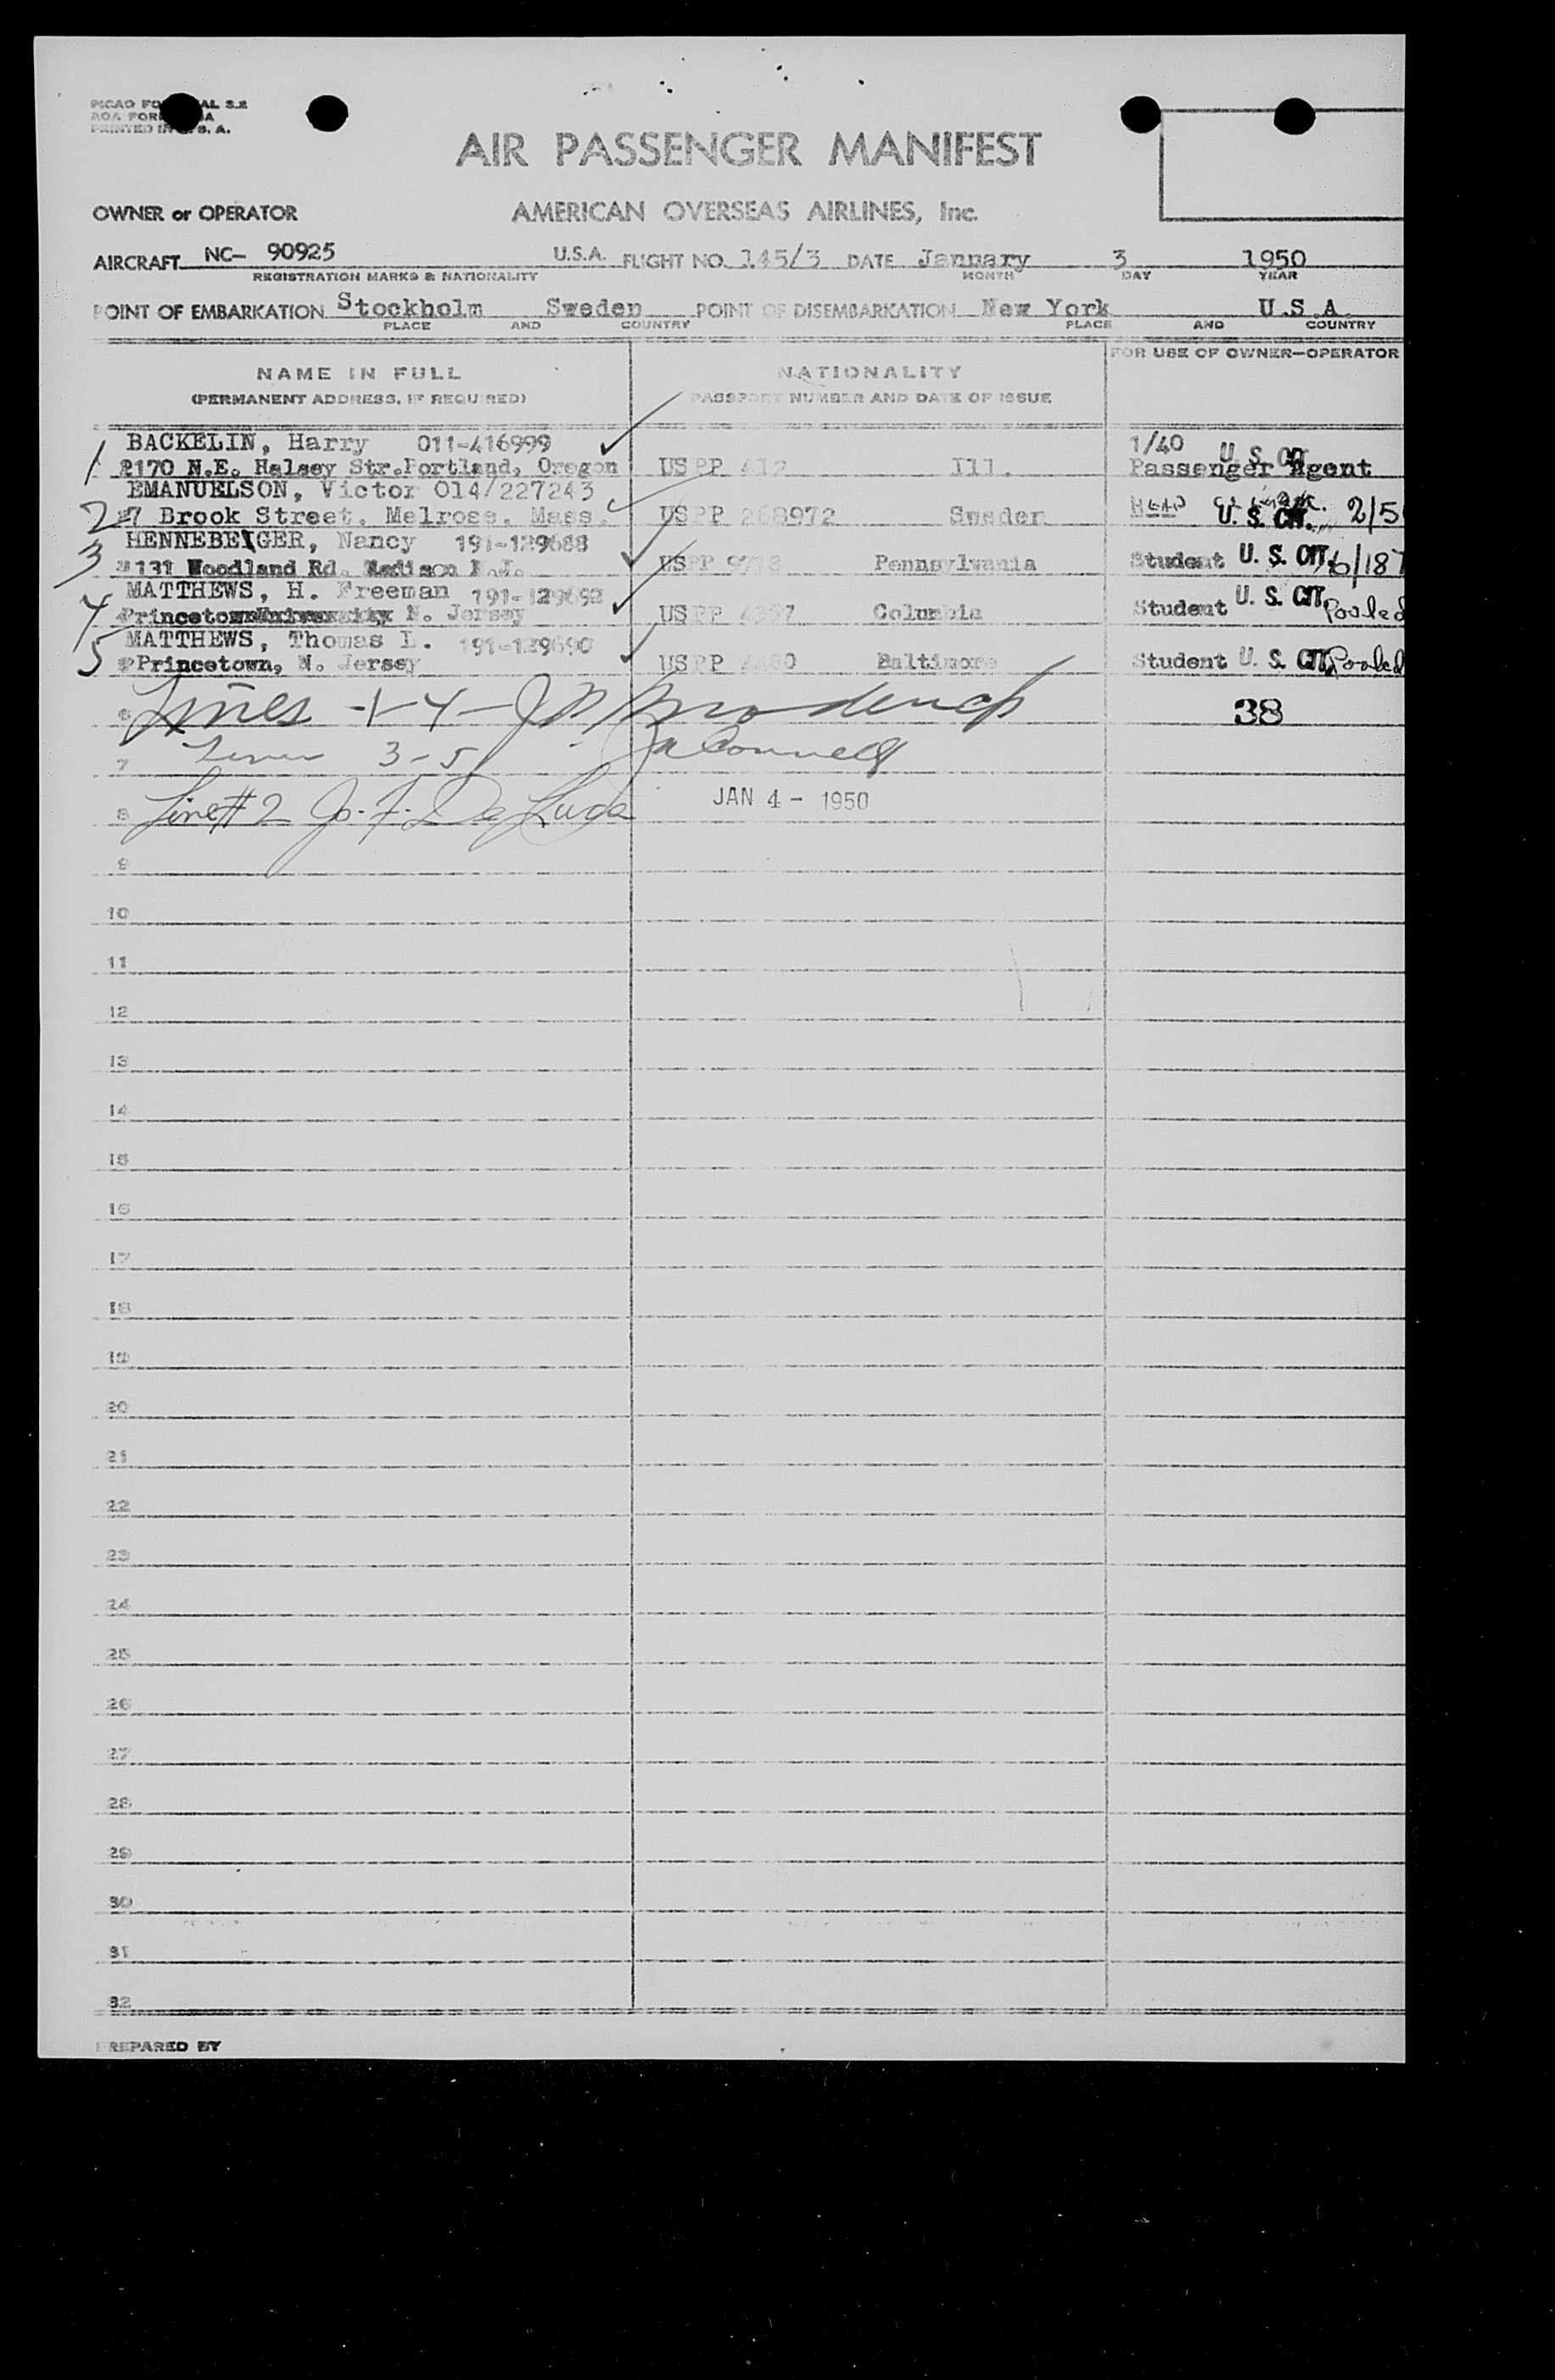 AIR PASSENGER MANIFEST
OWNER or OPERATOR AMERICAN OVERSEAS AIRLINES, Inc.
AIRCRAFT NC- 90925 U.S.A. FLIGHT NO. 145/3 DATE January 3 1950
REGISTRATION MARKS & NATIONALITY MONTH DAY YEAR
POINT OF EMBARKATION Stockholm Sweden POINT OF DISEMBARKATION New York U.S.A.
PLACE AND COUNTRY PLACE AND COUNTRY
FOR USE OF OWNER—OPERATOR
NAME IN FULL NATIONALITY
(PERMANENT ADDRESS, IF REQUIRED) PASSPORT NUMBER AND DATE OF ISSUE
BACKELIN, Harry 011-416999 1/40 U. S.
1 2170 N.E. Halsey Str.Portland, Oregon US PP 412 Ill. Passenger Agent
EMANUELSON, Victor 014/227243
2 27 Brook Street, Melrose, Mass. US PP 268972 Sweden U. S. CIT. 2/5
HENNEBERGER, Nancy 191-129688
3 131 Woodland Rd. Madison N.J. US PP Pennsylvania Student U. S. CIT. 6/187
MATTHEWS, H. Freeman 191-129692
4 Princeton University N. Jersey US PP Columbia Student U. S. CIT. Pooled
MATTHEWS, Thomas L. 191-129690
5 Princetown, N. Jersey US PP Baltimore Student U. S. CIT. Pooled
6 Lines 1-4- 38
7 Lines 3-5 McConnell
8 Line #2 Jo. F. De Luca JAN 4 - 1950
9
10
11
12
13
14
15
16
17
18
19
20
21
22
23
24
25
26
27
28
29
30
31
32
PREPARED BY